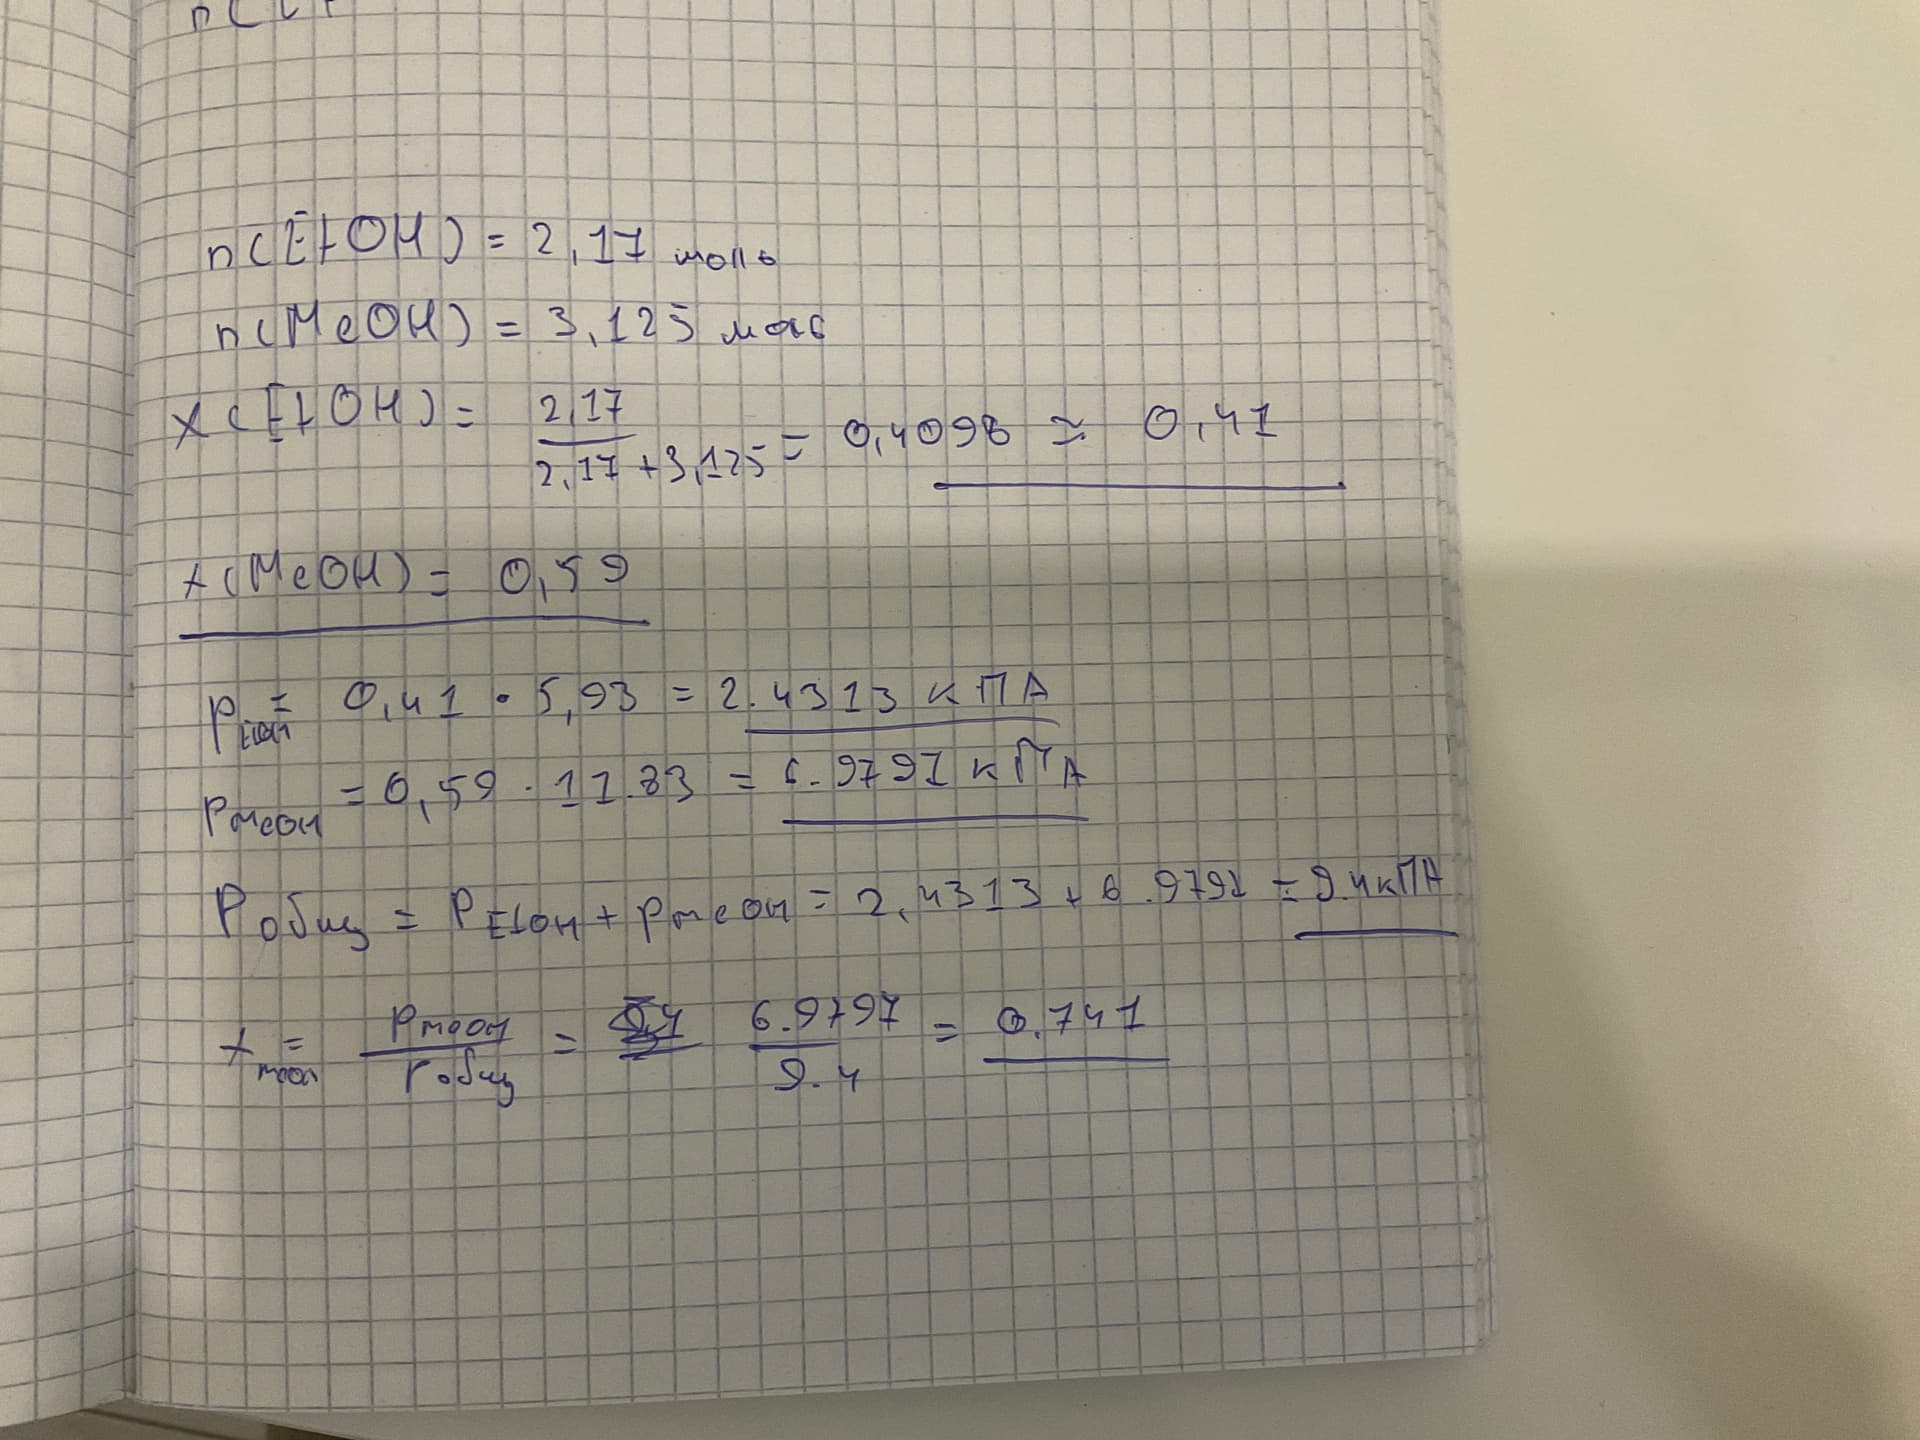 n(EtOH) = 2,17 моль
n(MeOH) = 3,125 моль
x(EtOH) = 2,17 / 2,17 + 3,125 = 0,4098 ≃ 0,41
x(MeOH) = 0,59
P EtOH = 0,41 · 5,93 = 2.4313 кПА
P MeOH = 0,59 · 11.83 = 6.9797 кПА
P общ = P EtOH + P MeOH = 2,4313 + 6.9797 = 9.4 кПА
x MeOH = P MeOH / P общ = 6.9797 / 9.4 = 0.741